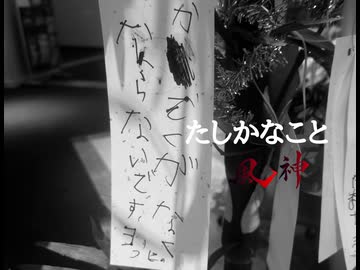 かぞくがなく
ならないですように。
たしかなこと
風神